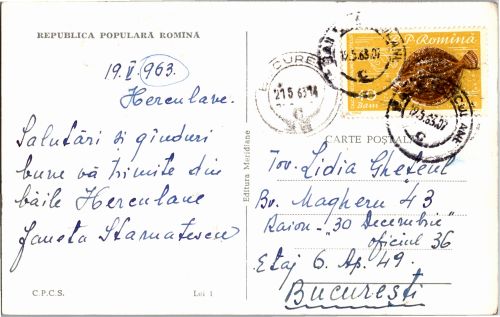 REPUBLICA POPULARĂ ROMÎNĂ
19.V.963.
Herculane.
Salutări si gînduri
bune vă trimite din
băile Herculane
Janeta Stamatescu
C.P.C.S.
Lei 1
Editura Meridiane
BUCURE
21 5 63 14
19.5.63.07
R.P. Romînă
Bani
CULANE
19.5.63.07
CARTE POȘTALĂ
Tov. Lidia
Bv. Magheru 43
Raion "30 Decembrie"
oficiul 36
Etaj 6. Ap. 49.
București